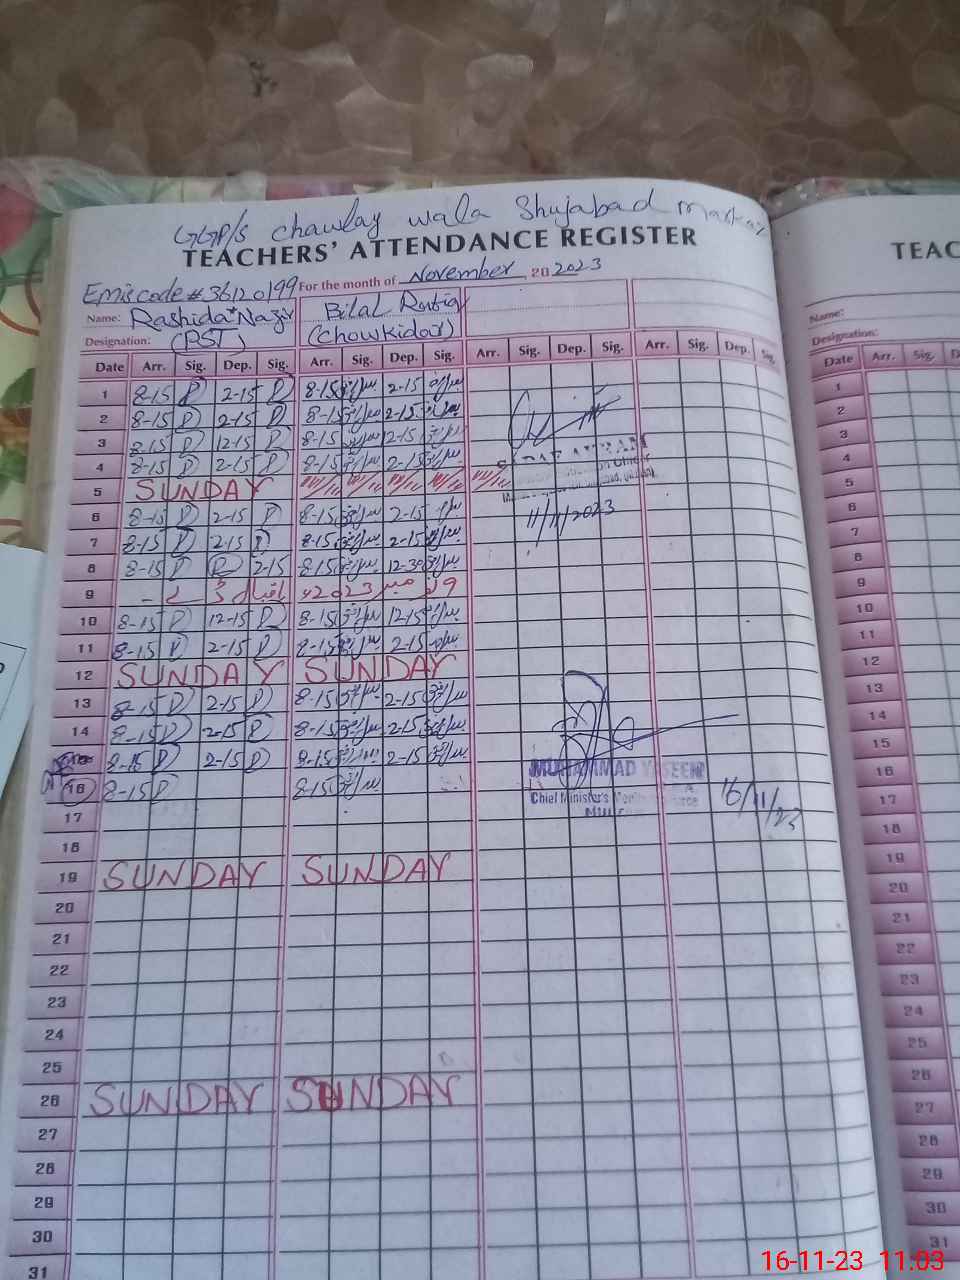 GGP/S chawlay wala Shujabad markaz
TEACHERS' ATTENDANCE REGISTER
Emis code # 36120199 For the month of November 20 2023
Name: Rashida Nazir Bilal Rafiq
Designation: (PST) (Chowkidar)
Date Arr. Sig. Dep. Sig. Arr. Sig. Dep. Sig. Arr. Sig. Dep. Sig. Arr. Sig. Dep. Sig.
1 8-15 2-15 8-15 2-15
2 8-15 2-15 8-15 2-15
3 8-15 12-15 8-15 12-15
4 8-15 2-15 8-15 2-15
5 SUNDAY
6 8-15 2-15 8-15 2-15
11/11/2023
7 8-15 2-15 8-15 2-15
8 8-15 2-15 8-15 12-30
9 9 نومبر 2023ء اقبال ڈے
10 8-15 12-15 8-15 12-15
11 8-15 2-15 8-15 2-15
12 SUNDAY SUNDAY
13 8-15 2-15 8-15 2-15
14 8-15 2-15 8-15 2-15
8-15 2-15 8-15 2-15
MUHAMMAD YASEEN
16 8-15 8-15
Chief Minister's
16/11/23
17
18
19 SUNDAY SUNDAY
20
21
22
23
24
25
26 SUNDAY SUNDAY
27
28
29
30
31
TEAC
Name:
Designation:
Date Arr. Sig. Dep.
1
2
3
4
5
6
7
8
9
10
11
12
13
14
15
16
17
18
19
20
21
22
23
24
25
26
27
28
29
30
31
16-11-23 11:03